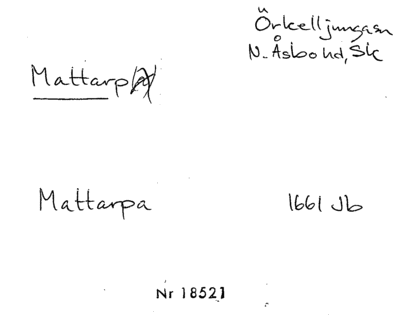 Örkelljungasn
N. Åsbo hd, Sk
Mattarp
Mattarpa 1661 Jb
Nr 18521